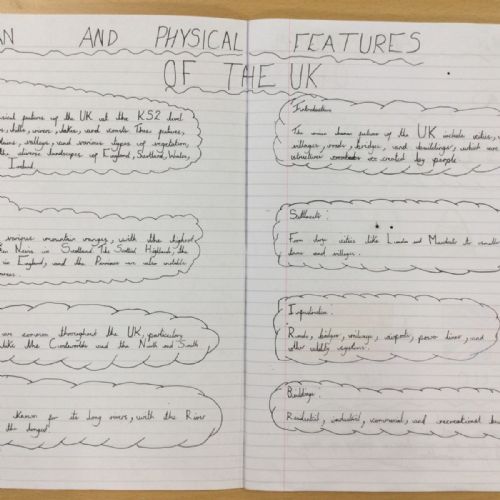 AN AND PHYSICAL FEATURES
OF THE UK
physical features of the UK at the KS2 level
hills, rivers, lakes, and coasts. These features,
valleys, and various types of vegetation,
the diverse landscapes of England, Scotland, Wales,
Ireland
various mountain ranges, with the highest
Ben Nevis in Scotland. The Scottish Highlands, the
in England, and the Pennines are also notable
are common throughout the UK, particularly
like the Cotswolds and the North and South
known for its long rivers, with the River
the longest
Introduction
The main human features of the UK include cities,
villages, roads, bridges, and buildings, which are
structures created by people
Settlements:
From large cities like London and Manchester to smaller
towns and villages.
Infrastructure:
Roads, bridges, railways, airports, power lines, and
other utility systems.
Buildings:
Residential, industrial, commercial, and recreational